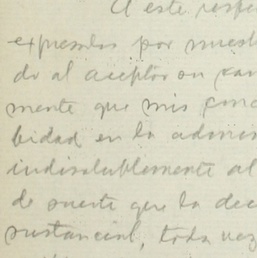 A este respe
expresados por nuest
do al aceptar su can
mente que mis conc
bidad en la admin
indisolublemente al
de suerte que la dec
sustancial, toda vez